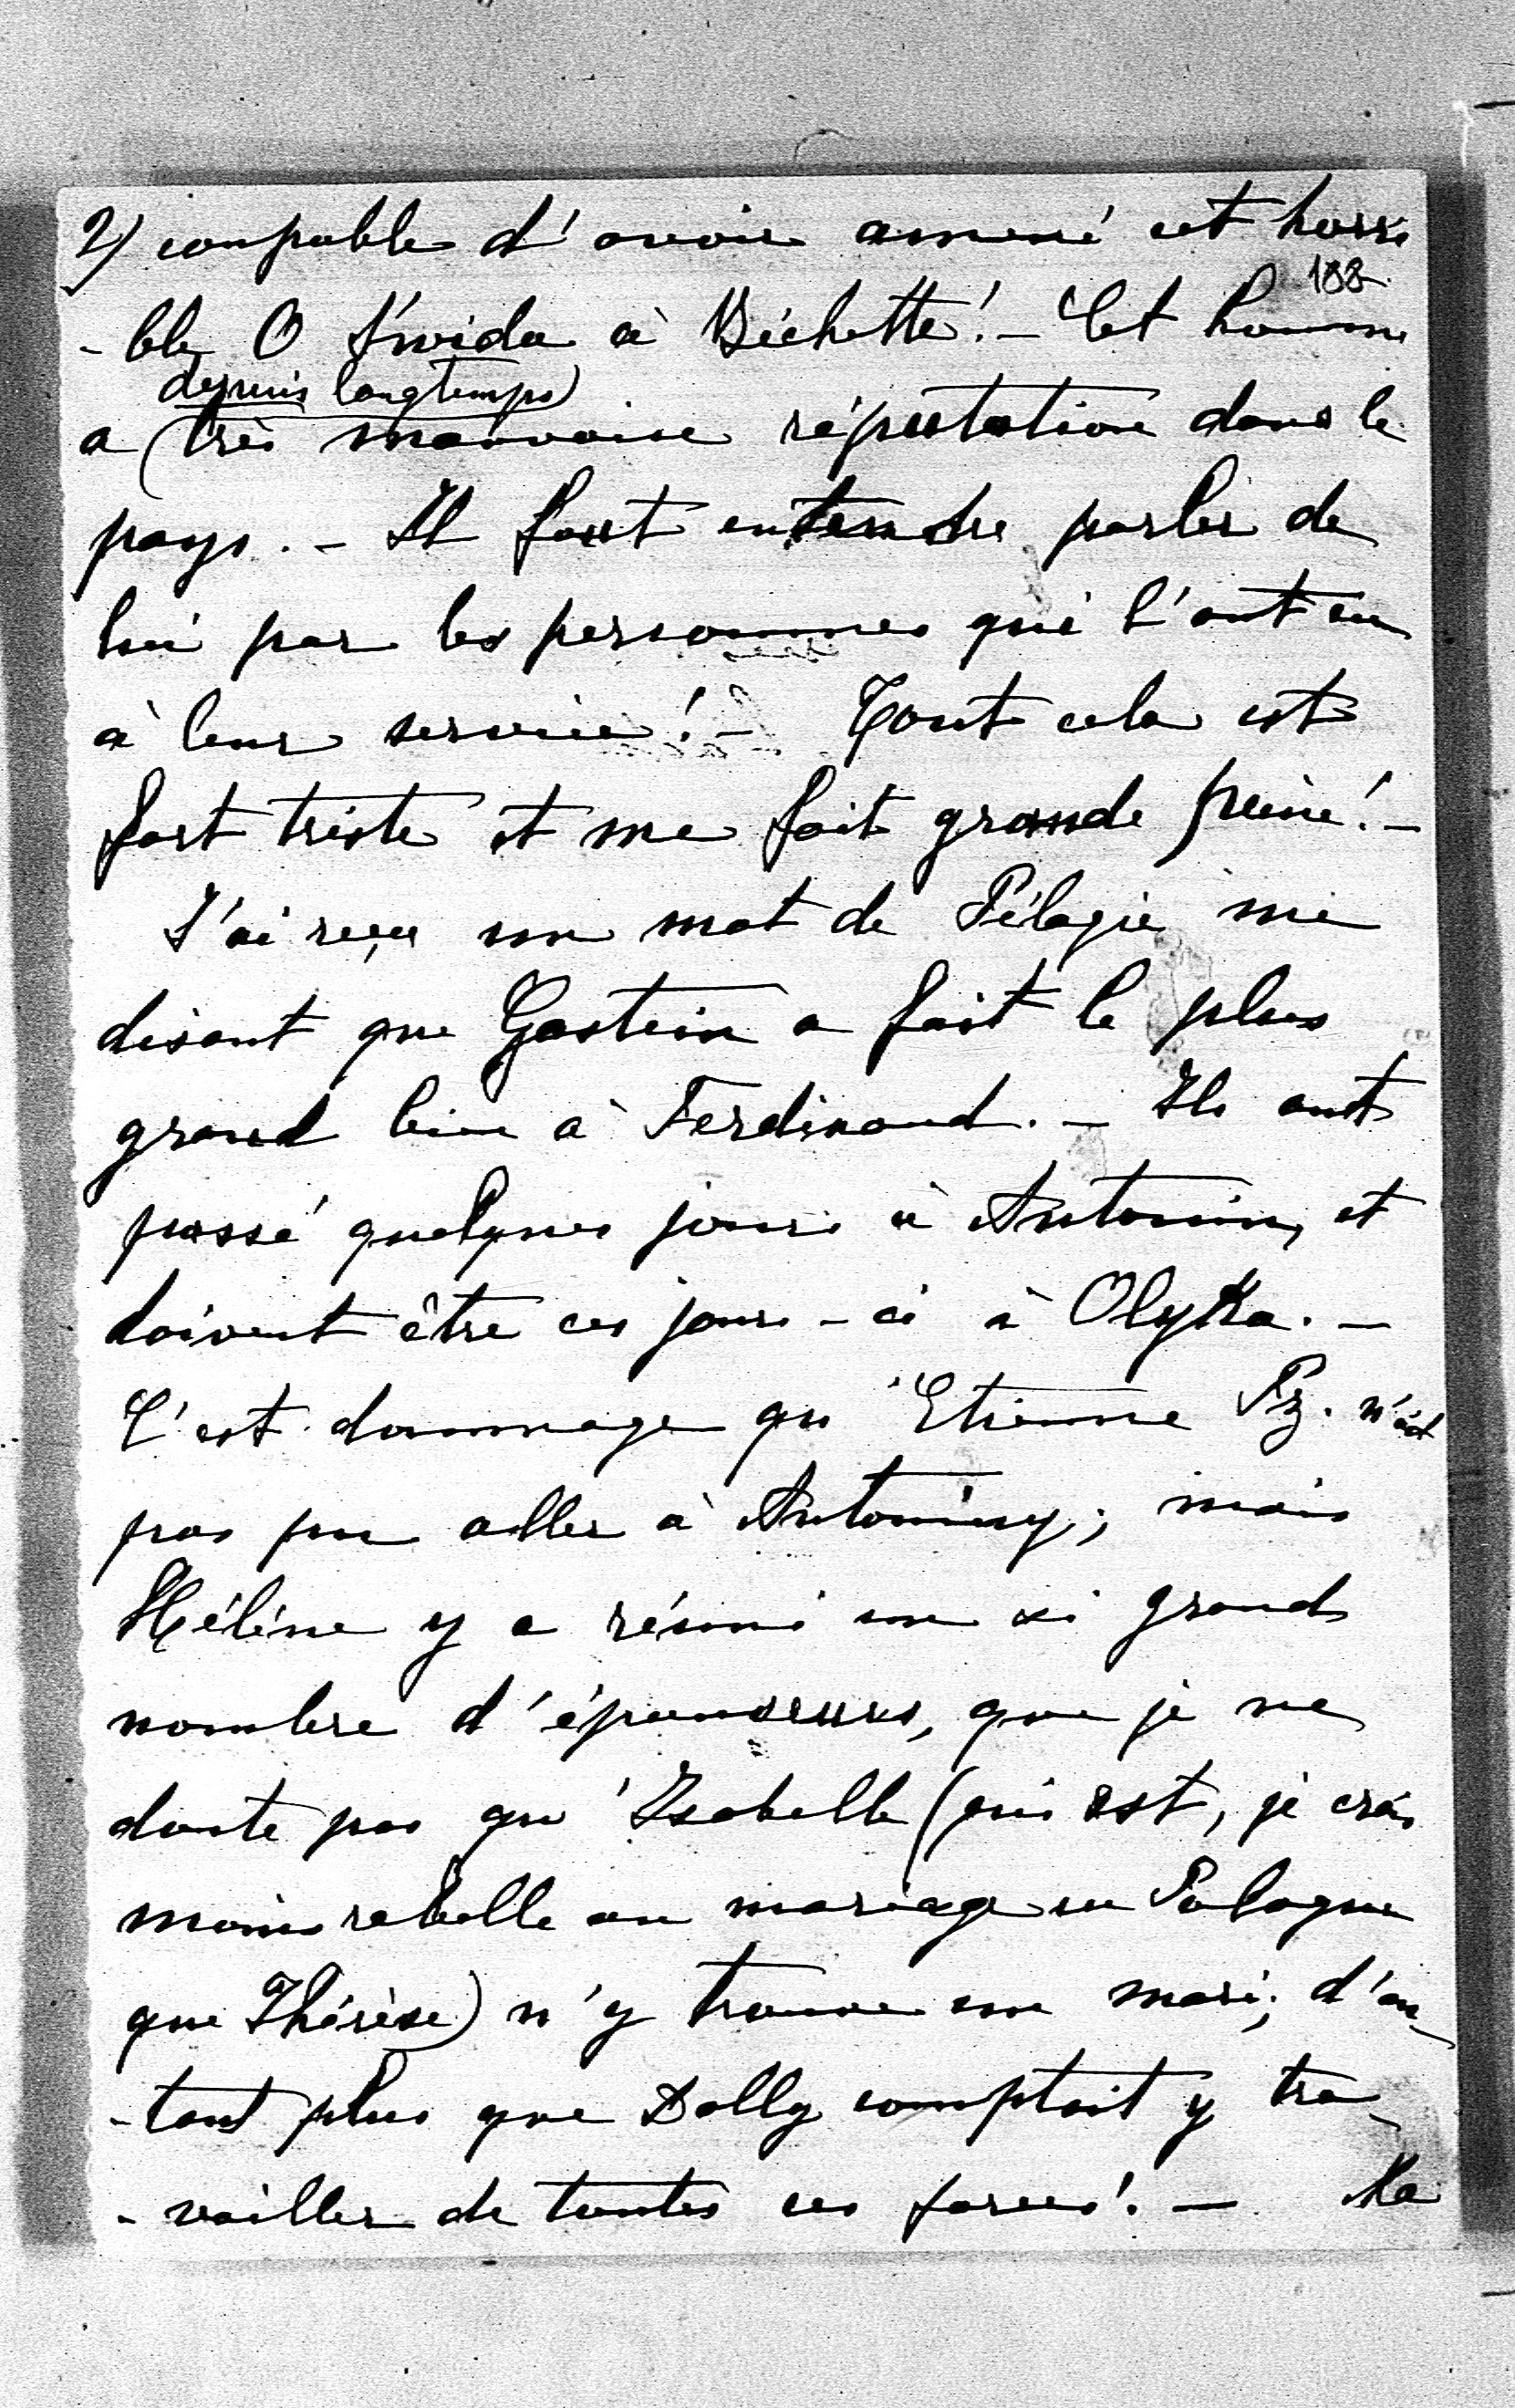 2) coupable d'avoir amené cet horri
188
-ble O Świda à Bichette! - Cet homme
depuis longtemps
a (très mauvaise réputation dans le
pays. - Il faut entendre parler de
lui par les personnes qui l'ont eu
à leur service! - Tout cela est
fort triste et me fait grande peine! -
J'ai reçu un mot de Pélagie me
disant que Gastein a fait le plus
grand bien à Ferdinand. - Ils ont
passé quelques jours à Antonin, et
doivent être ces jours-ci à Olyka. -
C'est dommage qu'Etienne Pz. n'ait
pas pu aller à Antoniny; mais
Hélène y a réuni un si grand
nombre d'épouseurs, que je ne
doute pas qu'Isabelle (qui est, je crois
moins rebelle au mariage en Pologne
que Thérèse) n'y trouve un mari; d'au
-tant plus que Dolly comptait y tra
-vailler de toutes ses forces! - Ma